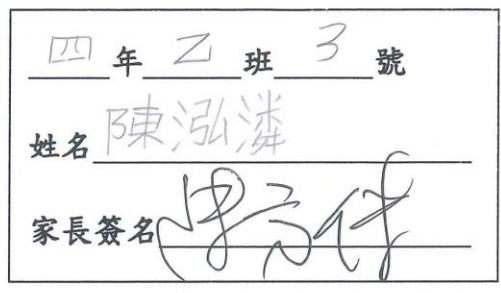 四年乙班3號
姓名陳泓潾
家長簽名